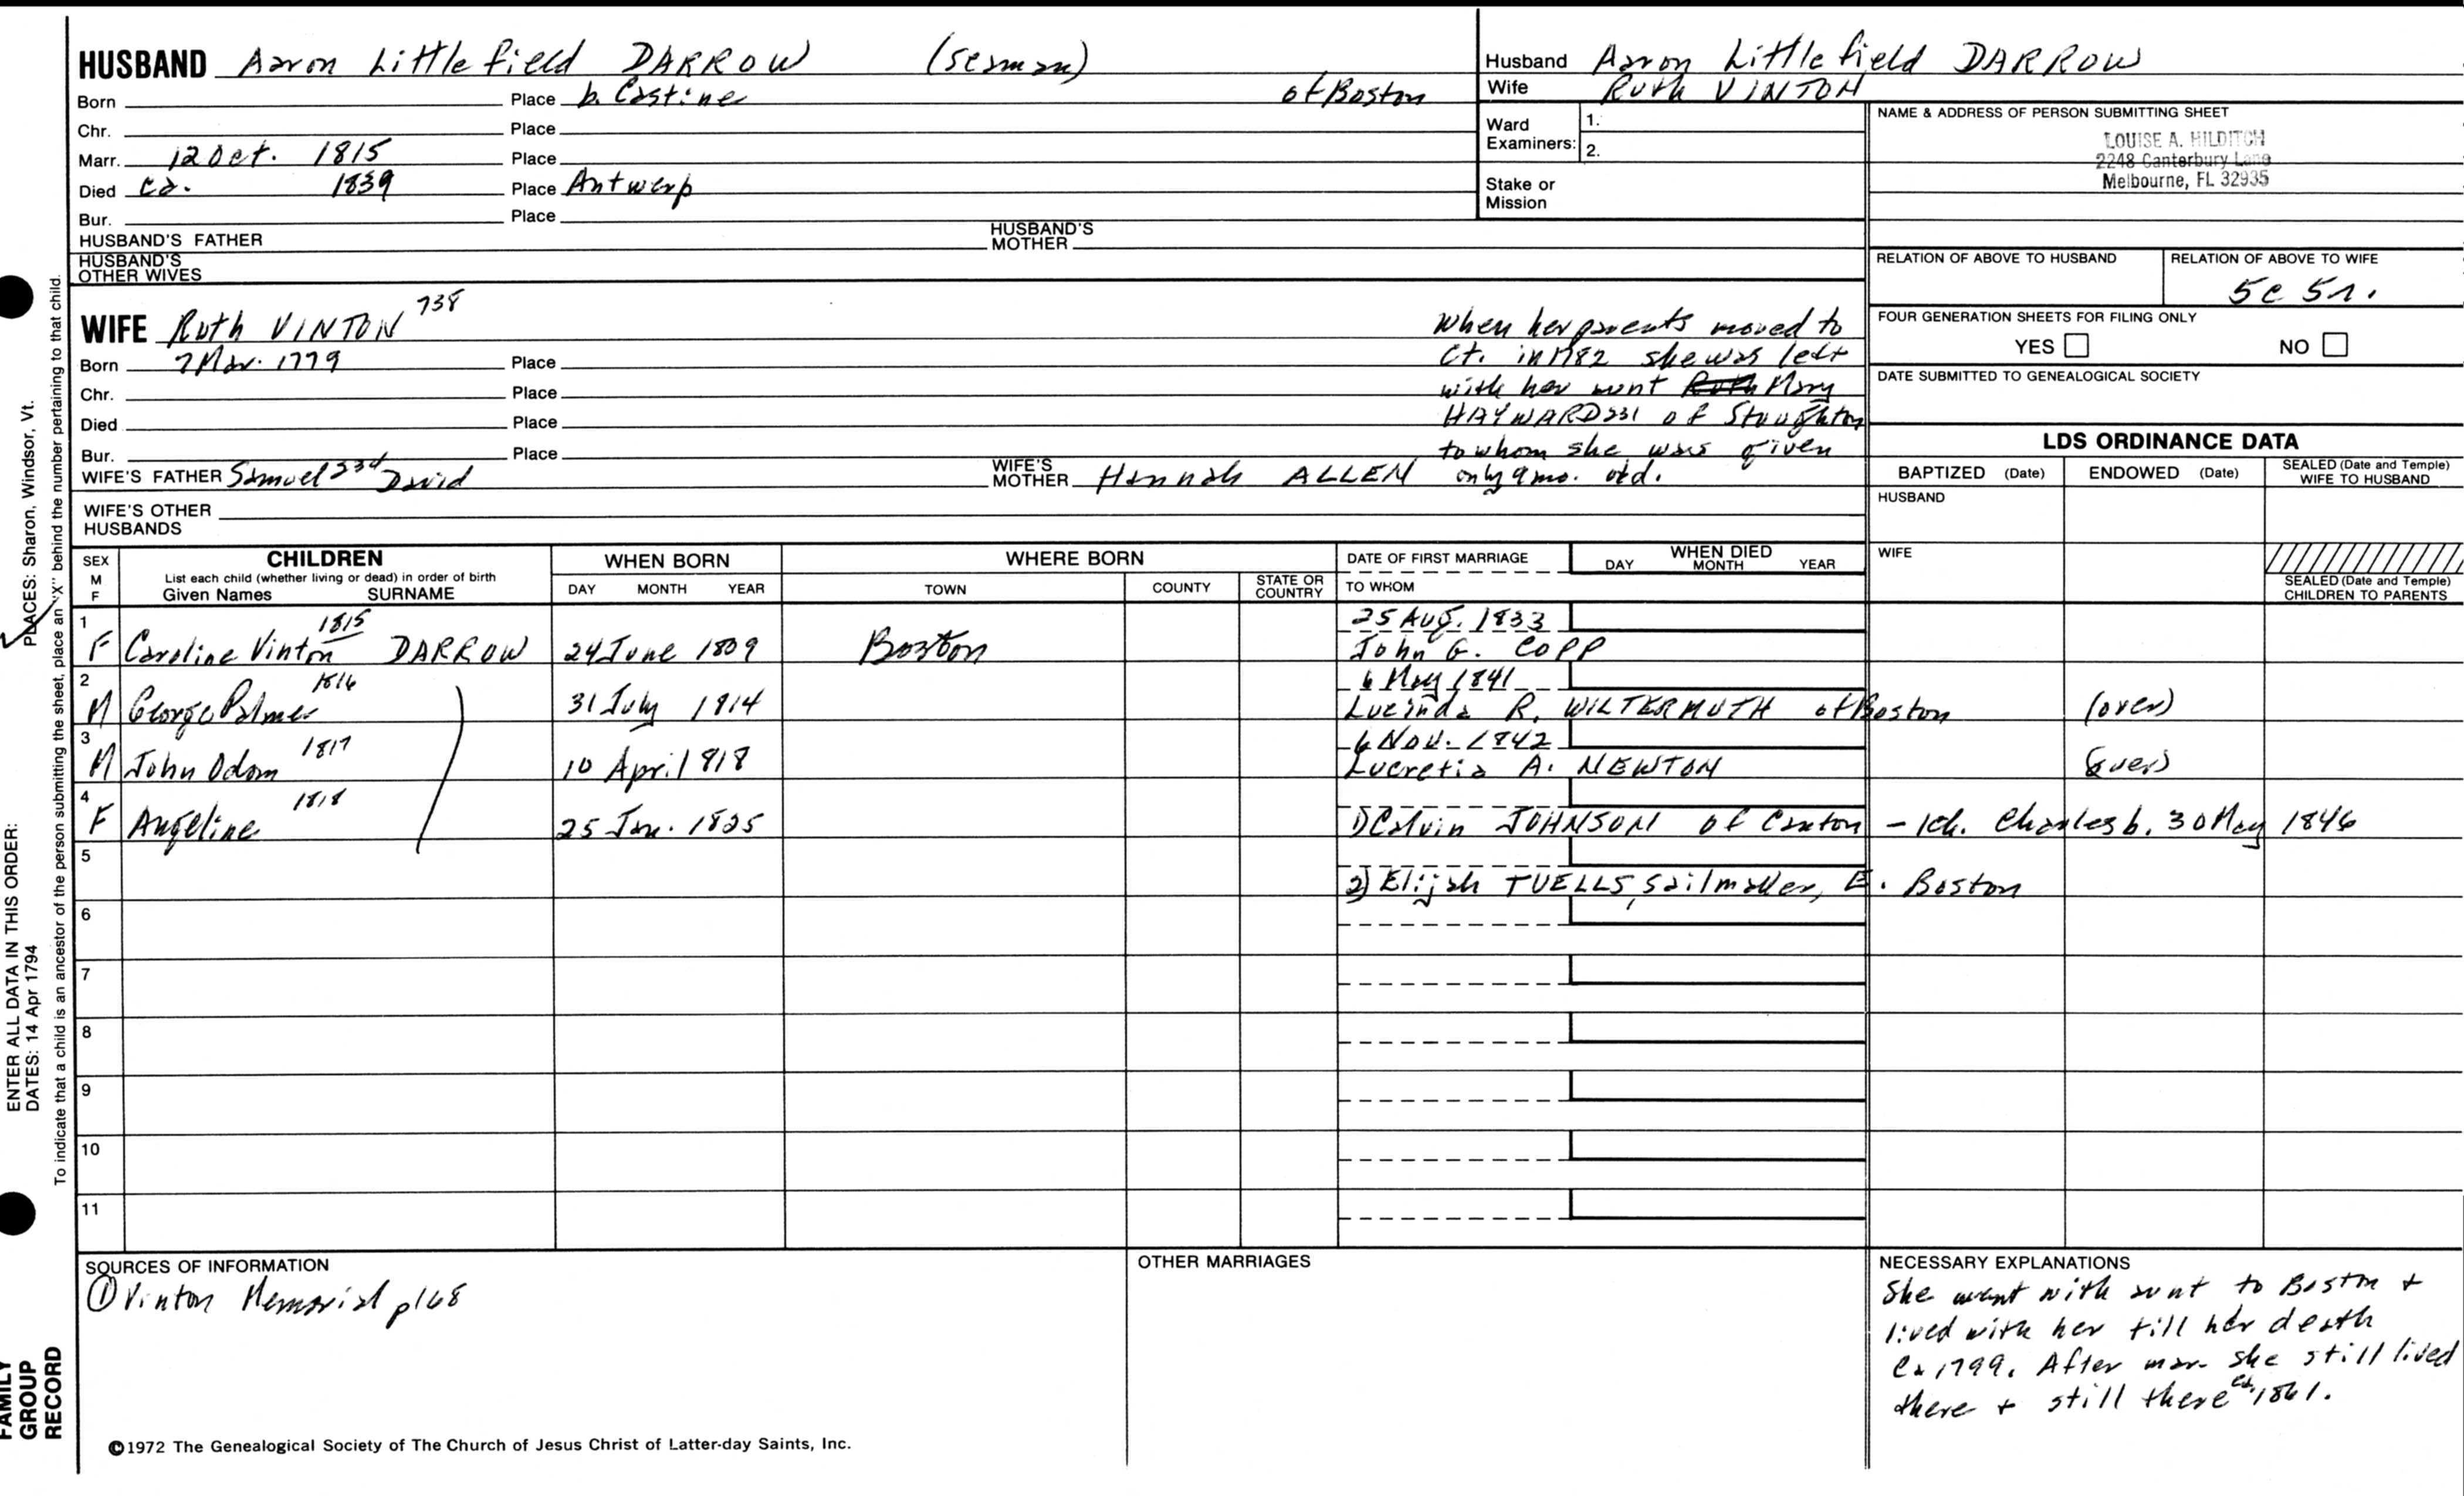 HUSBAND Aaron Littlefield DARROW (seaman)
Born Place b. Castine of Boston
Chr. Place
Marr. 12 Oct. 1815 Place
Died ca. 1839 Place Antwerp
Bur. Place
HUSBAND'S FATHER HUSBAND'S MOTHER
HUSBAND'S OTHER WIVES
Husband Aaron Littlefield DARROW
Wife Ruth VINTON
Ward Examiners: 1.
2.
Stake or Mission
NAME & ADDRESS OF PERSON SUBMITTING SHEET
LOUISE A. HILDITCH
2248 Canterbury Lane
Melbourne, FL 32935
RELATION OF ABOVE TO HUSBAND
RELATION OF ABOVE TO WIFE
5c 5r.
FOUR GENERATION SHEETS FOR FILING ONLY
YES NO
DATE SUBMITTED TO GENEALOGICAL SOCIETY
WIFE Ruth VINTON 738
Born 7 Mar. 1779 Place
Chr. Place
Died Place
Bur. Place
When her parents moved to
Ct. in 1782 she was left
with her aunt Ruth Mary
HAYWARD 231 of Stoughton
to whom she was given
only 9 mo. old.
WIFE'S FATHER Samuel 234 David WIFE'S MOTHER Hannah ALLEN
WIFE'S OTHER HUSBANDS
LDS ORDINANCE DATA
BAPTIZED (Date) ENDOWED (Date) SEALED (Date and Temple) WIFE TO HUSBAND
HUSBAND
WIFE
SEALED (Date and Temple) CHILDREN TO PARENTS
SEX M F
CHILDREN
List each child (whether living or dead) in order of birth
Given Names SURNAME
WHEN BORN
DAY MONTH YEAR
WHERE BORN
TOWN COUNTY STATE OR COUNTRY
DATE OF FIRST MARRIAGE
TO WHOM
WHEN DIED
DAY MONTH YEAR
1 1815 25 Aug. 1833
F Caroline Vinton DARROW 24 June 1809 Boston John G. COPP
2 1816 6 May 1841
M George Palmer 31 July 1814 Lucinda R. WILTERMUTH of Boston (over)
3 1817 6 Nov. 1842
M John Odom 10 April 1818 Lucretia A. NEWTON (over)
4 1818
F Angeline 25 Jan. 1825 1) Calvin JOHNSON of Canton - 1 ch. Charles b. 30 May 1846
5 2) Elijah TUELLS, sailmaker, E. Boston
6
7
8
9
10
11
SOURCES OF INFORMATION
① Vinton Memorial p168
OTHER MARRIAGES
NECESSARY EXPLANATIONS
She went with aunt to Boston +
lived with her till her death
ca 1799. After mar. she still lived
there + still there ca. 1861.
©1972 The Genealogical Society of The Church of Jesus Christ of Latter-day Saints, Inc.
PLACES: Sharon, Windsor, Vt.
ENTER ALL DATA IN THIS ORDER:
DATES: 14 Apr 1794
To indicate that a child is an ancestor of the person submitting the sheet, place an "X" behind the number pertaining to that child.
FAMILY
GROUP
RECORD